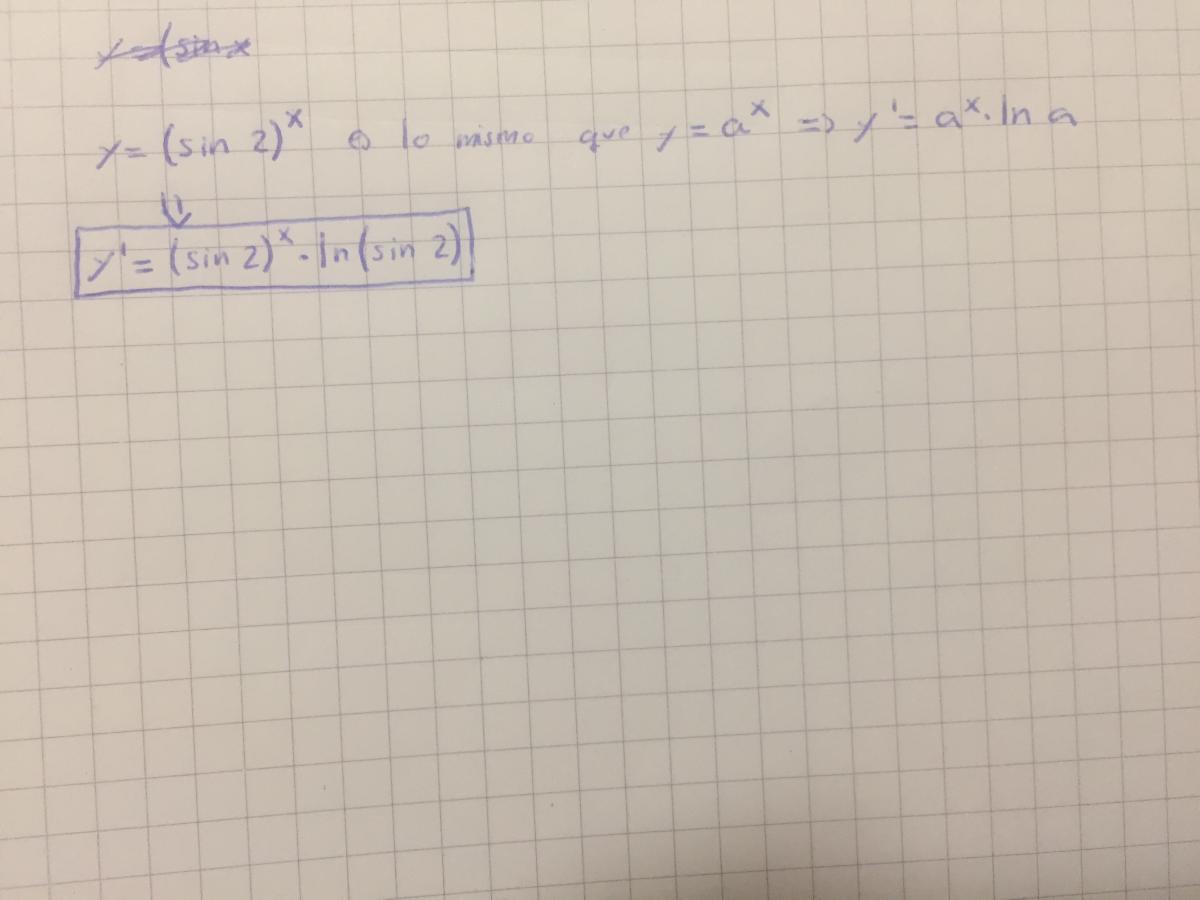 y=(sin x
y = (sin 2)^x es lo mismo que y = a^x => y' = a^x · ln a
⇓
y' = (sin 2)^x · ln (sin 2)